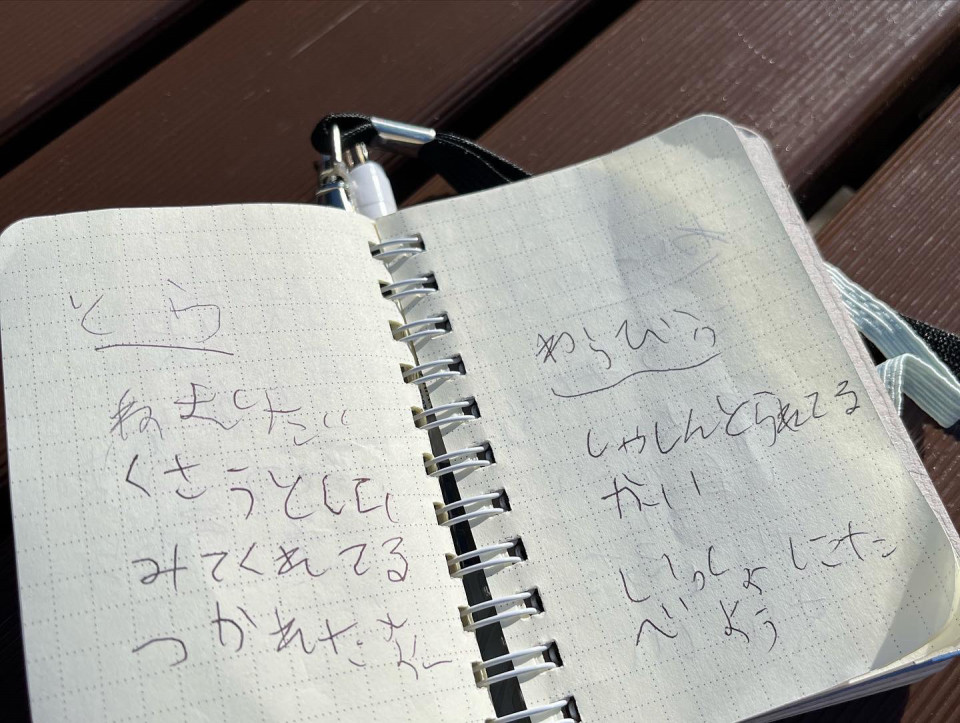 とら
くさうとしてい
みてくれてる
つかれたなー
わらびう
しゃしんとられてる
かい
いっしょにた
べよう